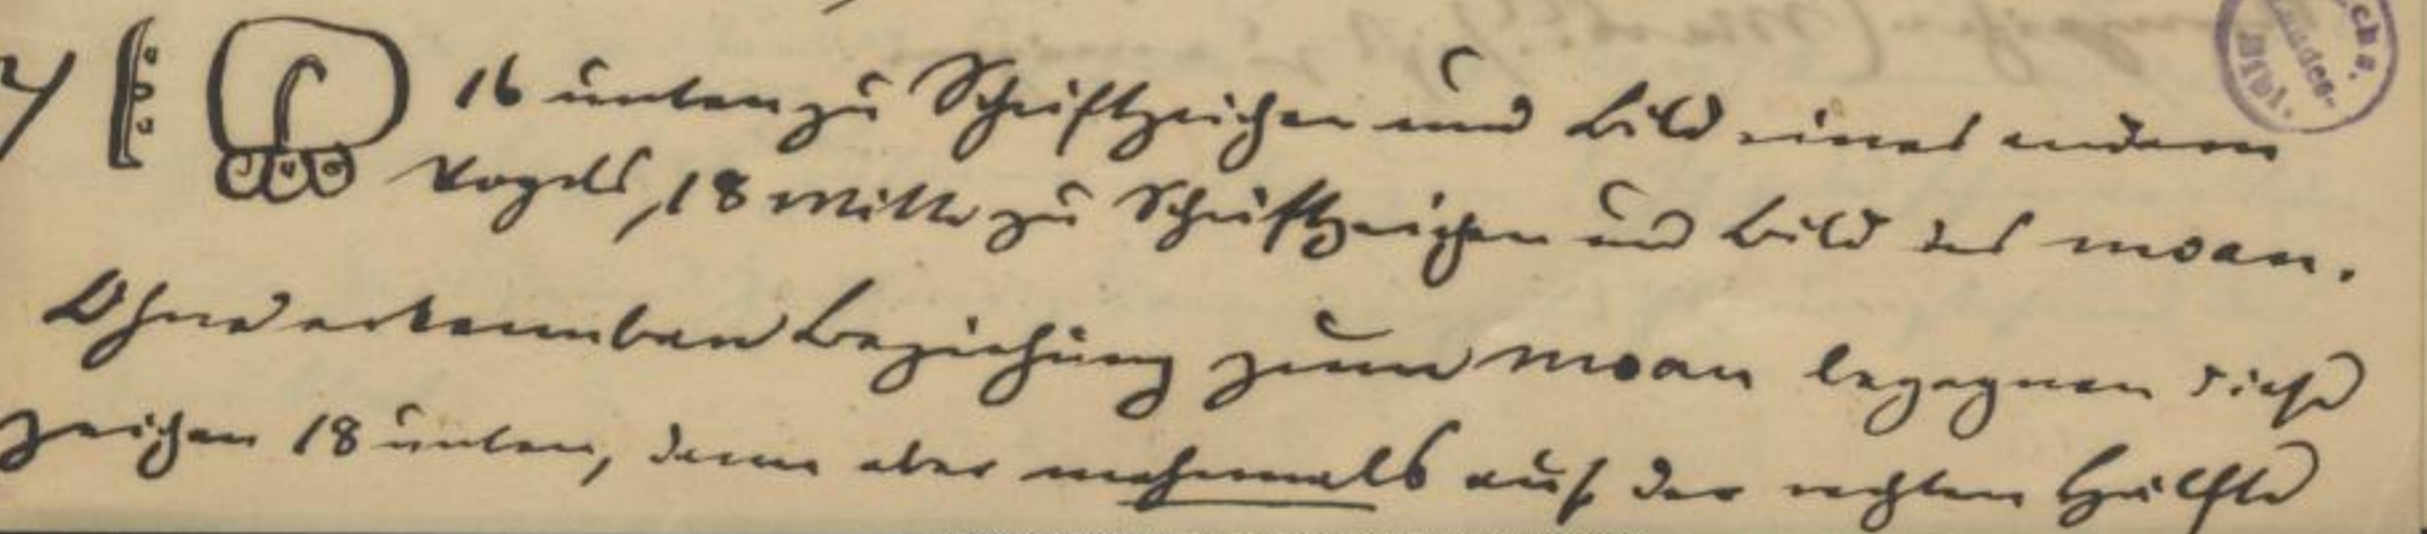 4) 16 unten zu Schriftzeichen und Bild eines andern
Vogels, 18 Mitte zu Schriftzeichen und Bild des moan.
Ohne erkennbare Beziehung zum moan begegnen diese
Zeichen 18 unten, dann aber mehrmals auf der rechten Hälfte